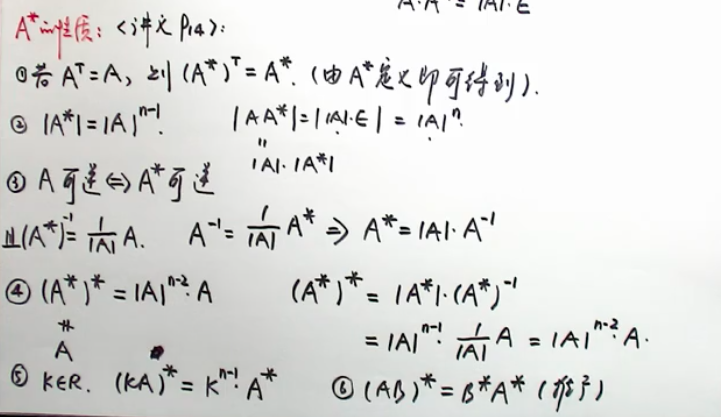 A·A* = |A|·E
A*的性质：<讲义 P14>：
①若 Aᵀ=A，则 (A*)ᵀ=A*.（由A*定义即可得到）.
② |A*|=|A|ⁿ⁻¹. |AA*|=||A|·E| = |A|ⁿ.
" |A|·|A*|
③ A可逆⇔A*可逆
且(A*)⁻¹=1/|A| A. A⁻¹=1/|A| A* ⇒ A*=|A|·A⁻¹
④ (A*)* = |A|ⁿ⁻²·A (A*)* = |A*|·(A*)⁻¹
A** = |A|ⁿ⁻¹·1/|A| A = |A|ⁿ⁻² A.
⑤ K∈R. (KA)* = Kⁿ⁻¹·A* ⑥ (AB)*=B*A*